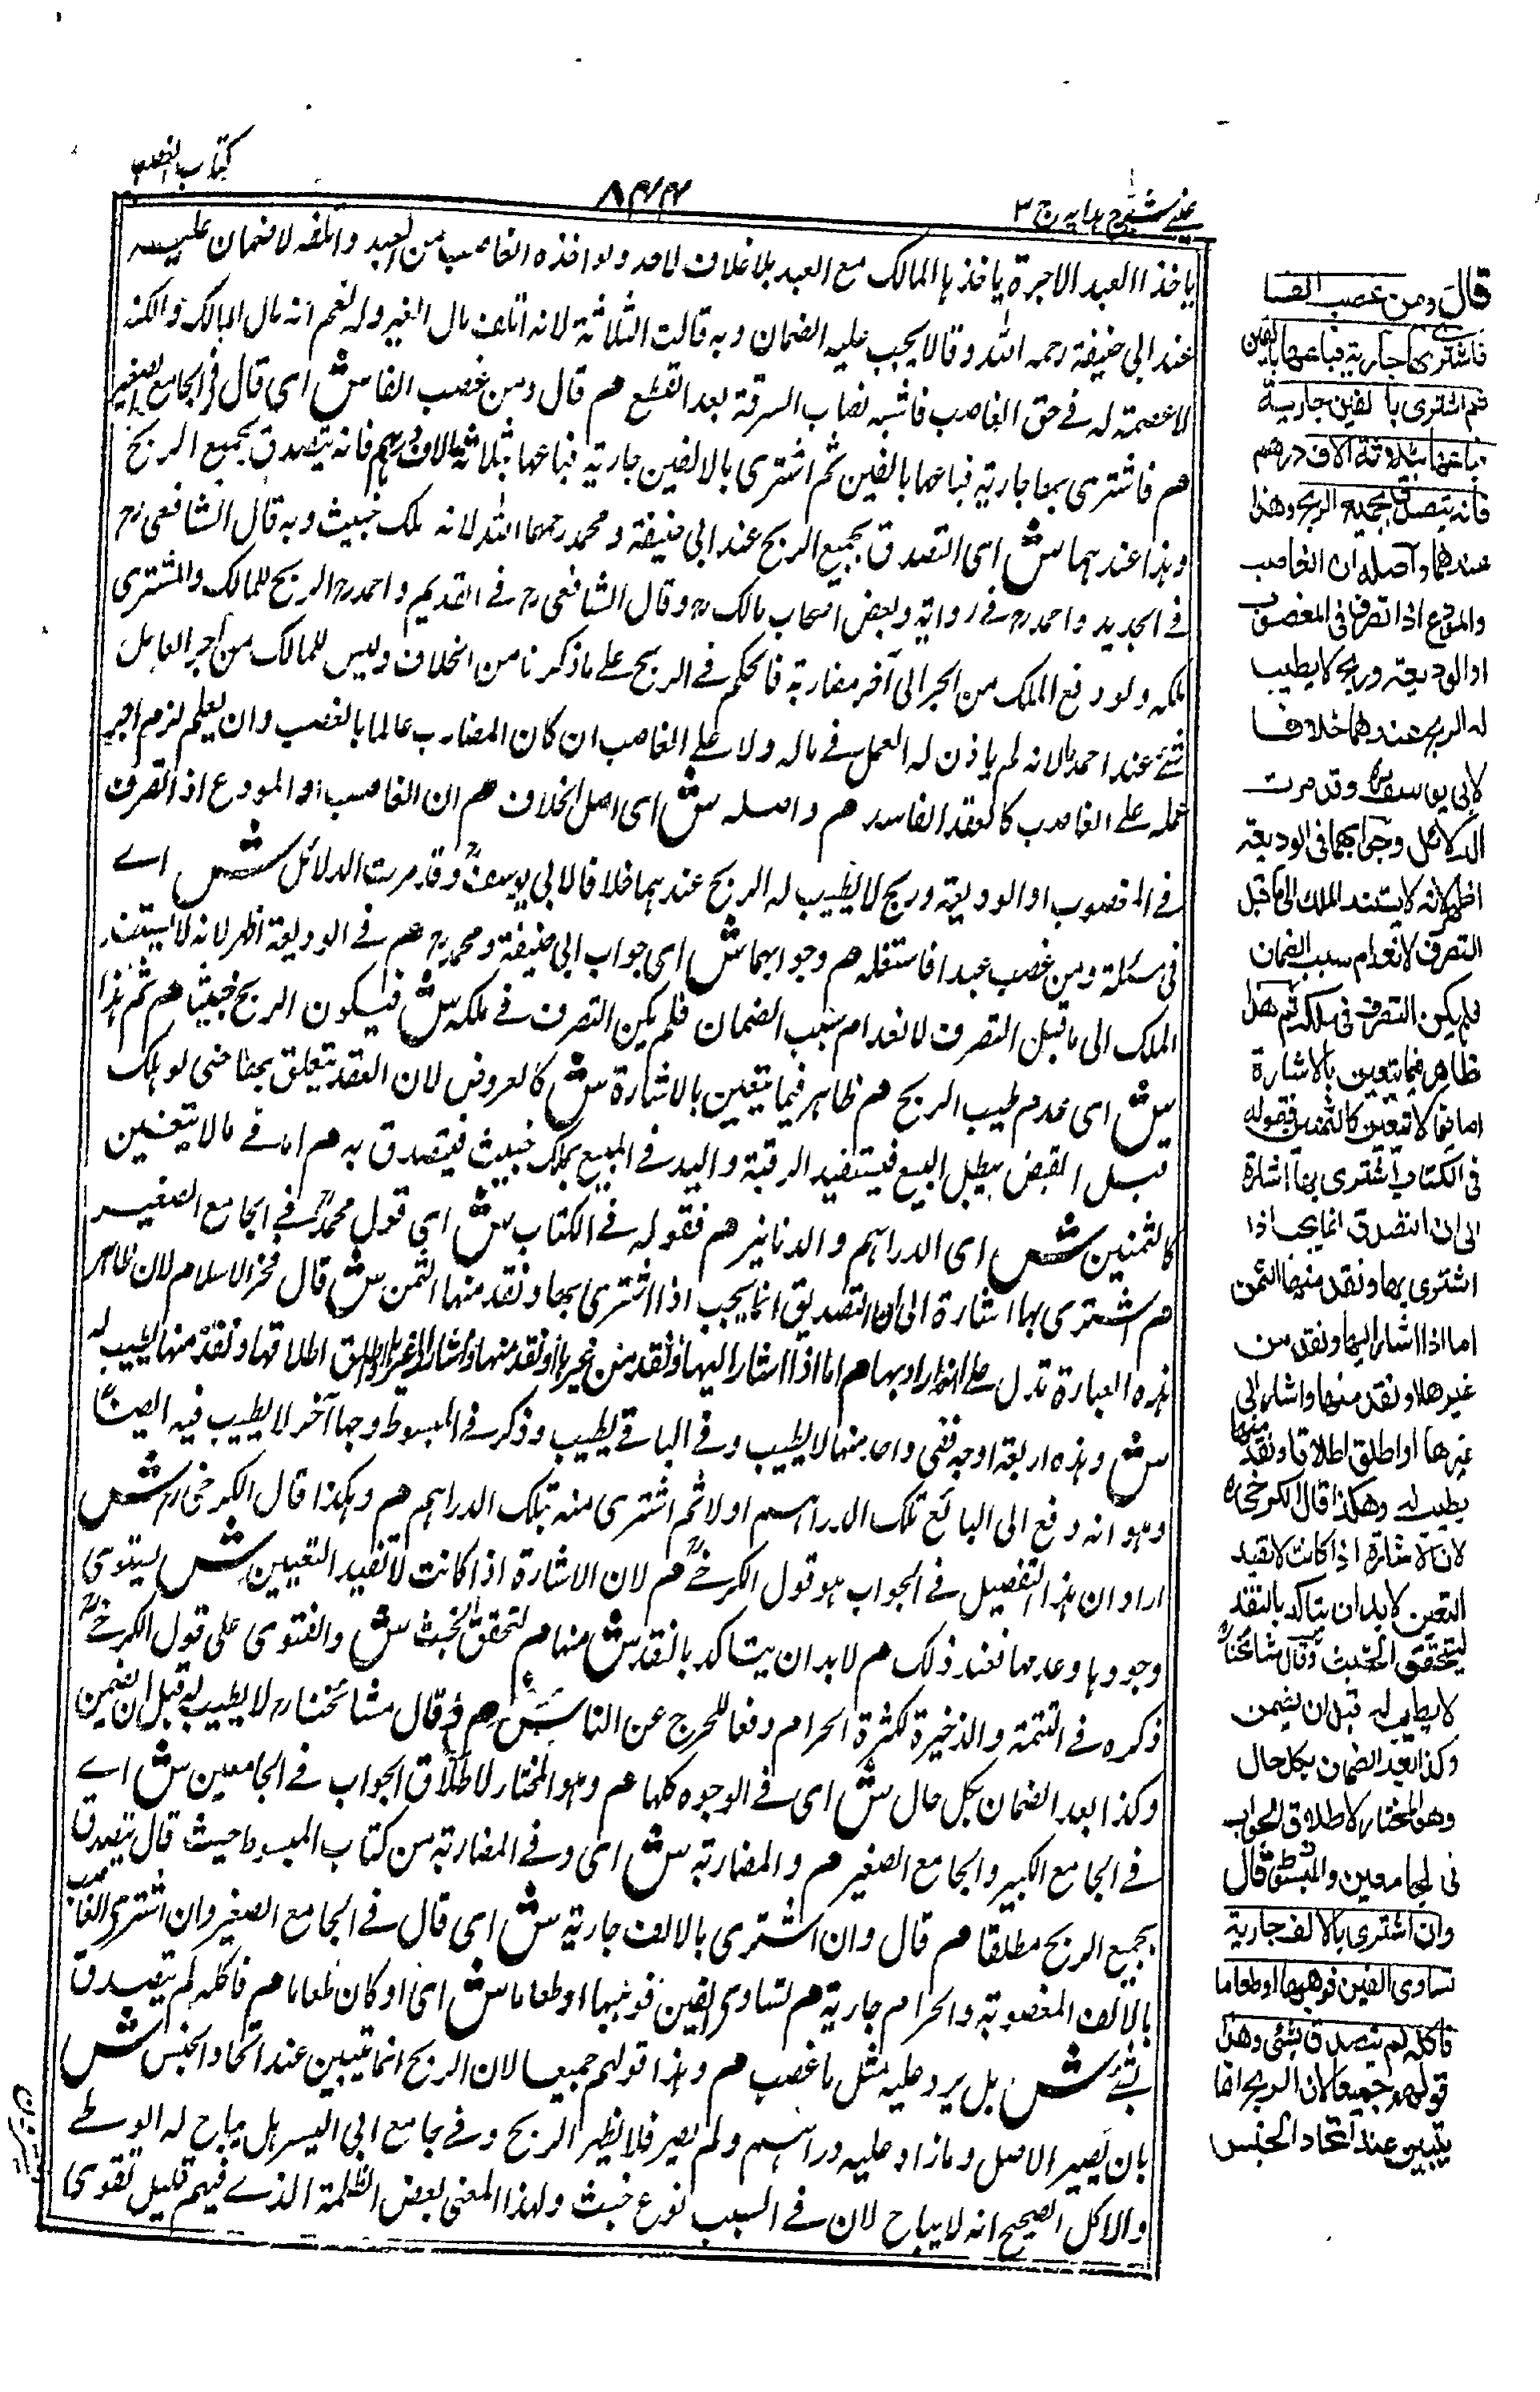 عينى شرح هدايه ج ٣
٨٣٣
كتاب الغصب
ياخذ العبد الاجرة ياخذها المالك مع العبد بلا خلاف لاحد ولو اخذه الغاصب من العبد واتلفه لا ضمان عليه
عند ابى حنيفة رحمه الله وقالا يجب عليه الضمان وبه قالت الثلاثة لانه اتلف مال الغير وله نعم انه مال المالك ولكنه
لا عصمة له فى حق الغاصب فاشبه نصاب السرقة بعد القطع هم قال ومن غصب الفا ش اى قال فى الجامع الصغير
هم فاشترى بها جارية فباعها بالفين ثم اشترى بالالفين جارية فباعها بثلاثة الاف درهم فانه يتصدق بجميع الربح
وهذا عندهما ش اى التصدق بجميع الربح عند ابى حنيفة ومحمد رحمهما الله لانه ملك خبيث وبه قال الشافعى رح
فى الجديد واحمد رح فى رواية وبعض اصحاب مالك رح وقال الشافعى رح فى القديم واحمد رح الربح للمالك والمشترى
ملكه ولو دفع الملك من الجبر الى آخر مضاربة فالحكم فى الربح على ما ذكرنا من الخلاف وليس للمالك من اجر العامل
شئ عند احمد لانه لم ياذن له العمل فى ماله ولا على الغاصب ان كان المضارب عالما بالغصب وان لم يعلم لزم اجر
عمله على الغاصب كالعقد الفاسد هم واصله ش اى اصل الخلاف هم ان الغاصب او المودع اذا تصرف
فى المغصوب او الوديعة وربح لا يطيب له الربح عندهما خلافا لابى يوسف رح وقد مرت الدلائل ش اے
فى مسئلة ومن غصب عبدا فاستغله هم وجوابهما ش اى جواب ابى حنيفة ومحمد رح هم فى الوديعة اظهر لانه لا يستند
الملك الى ما قبل التصرف لانعدام سبب الضمان فلم يكن التصرف فى ملكه ش فيكون الربح خبيثا هم ثم هذا
ش اى عدم طيب الربح هم ظاهر فيما يتعين بالاشارة ش كالعروض لان العقد يتعلق بها حتى لو هلك
قبل القبض يبطل البيع فيستفيد الرقبة واليد فى المبيع بملك خبيث فيتصدق به هم اما فى ما لا يتعين
كالثمنين ش اى الدراهم والدنانير هم فقوله فى الكتاب ش اى قول محمد رح فى الجامع الصغير
هم اشترى بها اشارة الى ان التصديق انما يجب اذا اشترى بها ونقد منها الثمن ش قال فخر الاسلام لان ظاهر
هذه العبارة تدل على انه اراد بها هم اما اذا اشار اليها ونقد من غيرها او نقد منها واشار الى غيرها او اطلق اطلاقها ونقد منها يطيب له
ش وهذه اربعة اوجه ففى واحد منها لا يطيب وفى الباقى يطيب وذكر فى المبسوط وجها آخر لا يطيب فيه ايضا
وهو انه دفع الى البائع تلك الدراهم اولا ثم اشترى منه بتلك الدراهم هم وهكذا قال الكرخى رح ش
اراد ان هذا التفصيل فى الجواب هو قول الكرخى رح هم لان الاشارة اذا كانت لا تفيد التعيين ش يستوى
وجودها وعدمها فعند ذلك هم لا بد ان يتاكد بالنقد ش منها هم لتحقق الخبث ش والفتوى على قول الكرخى رح
ذكره فى التتمة والذخيرة لكثرة الحرام دفعا للحرج عن الناس هم وقال مشائخنا رح لا يطيب له قبل ان يضمن
وكذا بعد الضمان بكل حال ش اى فى الوجوه كلها هم وهو المختار لاطلاق الجواب فى الجامعين ش اے
فى الجامع الكبير والجامع الصغير هم والمضاربة ش اى وفى المضاربة من كتاب المبسوط حيث قال يتصدق
بجميع الربح مطلقا هم قال وان اشترى بالالف جارية ش اى قال فى الجامع الصغير وان اشترى الغاصب
بالالف المغصوبة والحرام جارية هم تساوى الفين فوهبها او طعاما ش اى او كان طعاما هم فاكله لم يتصدق
بشئ ش بل يرد عليه مثل ما غصب هم وهذا قولهم جميعا لان الربح انما يتبين عند اتحاد الجنس ش
بان يصير الاصل وما زاد عليه دراهم ولم يصر فلا يظهر الربح وفى جامع ابى اليسر هل يباح له الوطى
والاكل الصحيح انه لا يباح لان فى السبب نوع خبث ولهذا المعنى بعض الظلمة الذى فيهم قليل تقوى
قال ومن غصب الفا
فاشترى بها جارية فباعها بالفين
ثم اشترى بالفين جارية
فباعها بثلاثة الاف درهم
فانه يتصدق بجميع الربح وهذا
عندهما واصله ان الغاصب
والمودع اذا تصرف فى المغصوب
او الوديعة وربح لا يطيب
له الربح عندهما خلافا
لابى يوسف رح وقد مرت
الدلائل وجوابهما فى الوديعة
اظهر لانه لا يستند الملك الى ما قبل
التصرف لانعدام سبب الضمان
فلم يكن التصرف فى ملكه ثم هذا
ظاهر فيما يتعين بالاشارة
اما فيما لا تتعين كالثمنين فقوله
فى الكتاب اشترى بها اشارة
الى ان التصدق انما يجب اذا
اشترى بها ونقد منها الثمن
اما اذا اشار اليها ونقد من
غيرها او نقد منها واشار الى
غيرها او اطلق اطلاقا ونقد منها
يطيب له وهكذا قال الكرخى رح
لان الاشارة اذا كانت لا تفيد
التعيين لا بد ان يتاكد بالنقد
ليتحقق الخبث وقال مشائخنا رح
لا يطيب له قبل ان يضمن
وكذا بعد الضمان بكل حال
وهو المختار لاطلاق الجواب
فى الجامعين والمبسوط قال
وان اشترى بالالف جارية
تساوى الفين فوهبها او طعاما
فاكله لم يتصدق بشئ وهذا
قولهم جميعا لان الربح انما
يتبين عند اتحاد الجنس